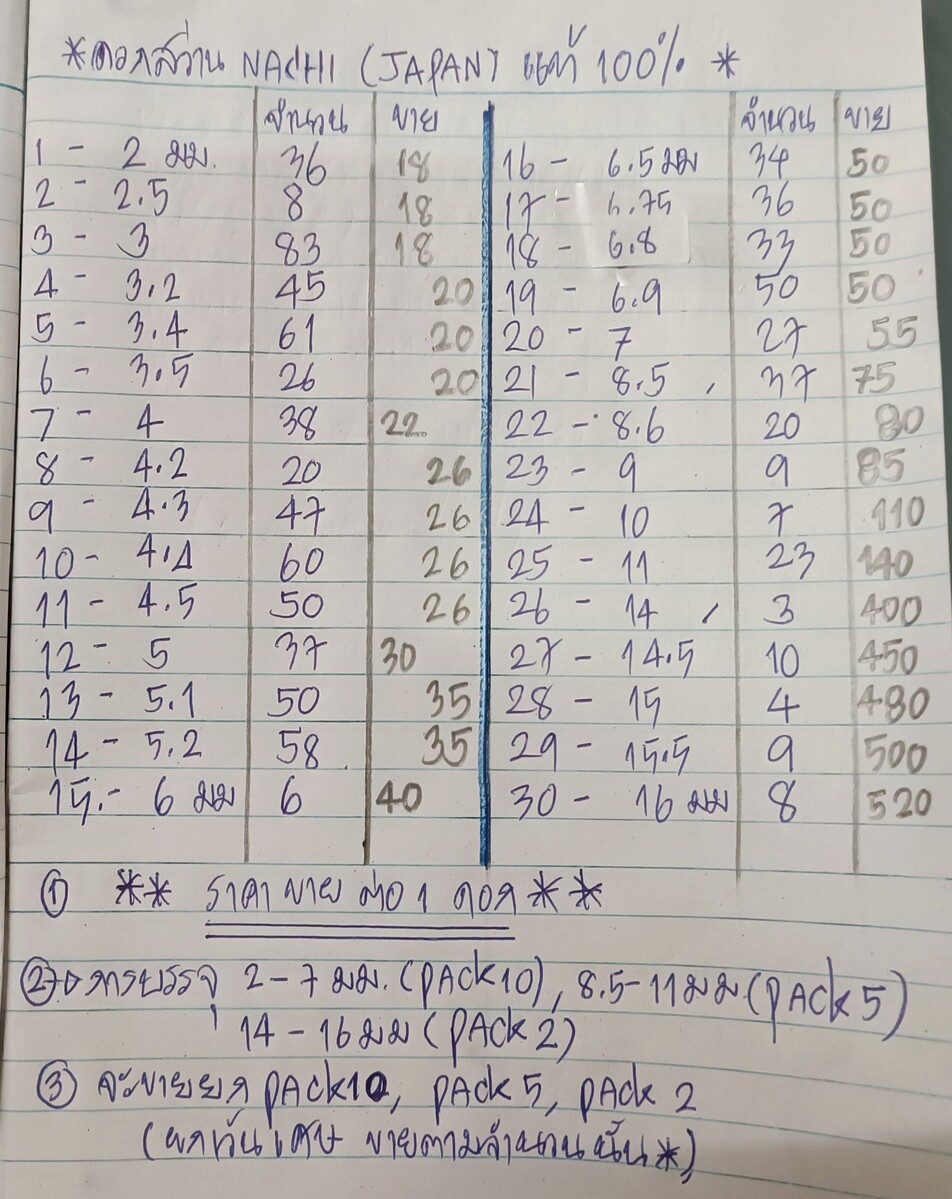 *ดอกสว่าน NACHI (JAPAN) แท้ 100% *
จำนวน ขาย จำนวน ขาย
1 - 2 มม. 36 18 16 - 6.5 มม 34 50
2 - 2.5 8 18 17 - 6.75 36 50
3 - 3 83 18 18 - 6.8 33 50
4 - 3.2 45 20 19 - 6.9 50 50
5 - 3.4 61 20 20 - 7 27 55
6 - 3.5 26 20 21 - 8.5 37 75
7 - 4 38 22 22 - 8.6 20 80
8 - 4.2 20 26 23 - 9 9 85
9 - 4.3 47 26 24 - 10 7 110
10 - 4.4 60 26 25 - 11 23 140
11 - 4.5 50 26 26 - 14 3 400
12 - 5 37 30 27 - 14.5 10 450
13 - 5.1 50 35 28 - 15 4 480
14 - 5.2 58 35 29 - 15.5 9 500
15.- 6 มม 6 40 30 - 16 มม 8 520
① ** ราคาขาย ต่อ 1 ดอก **
② การบรรจุ 2-7 มม. (PACK10), 8.5-11 มม (PACK 5)
14 - 16 มม (PACK 2)
③ จะขายยก PACK10, PACK 5, PACK 2
(ยกเว้นเศษ ขายตามจำนวนนั้น*)